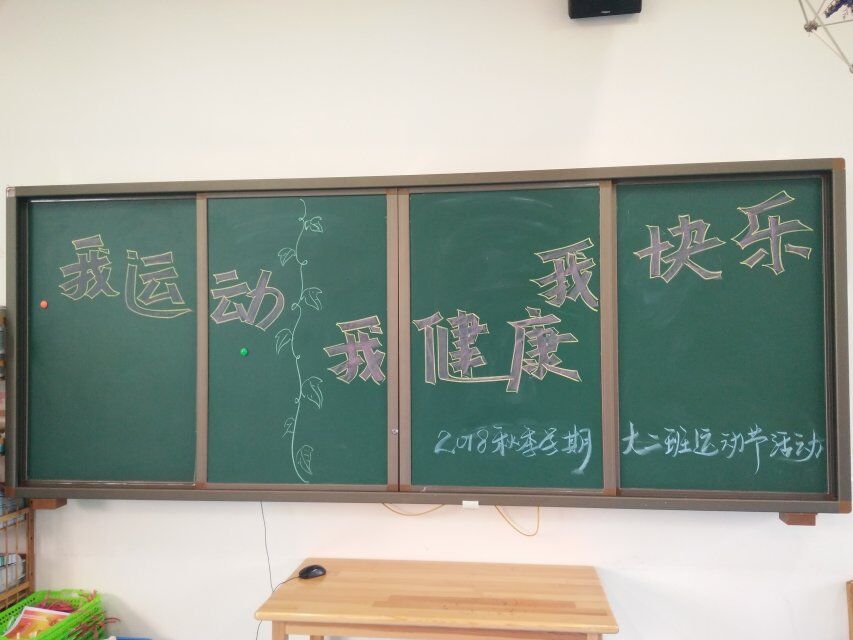 我运动
我健康
我快乐
2018秋季学期 大二班运动节活动